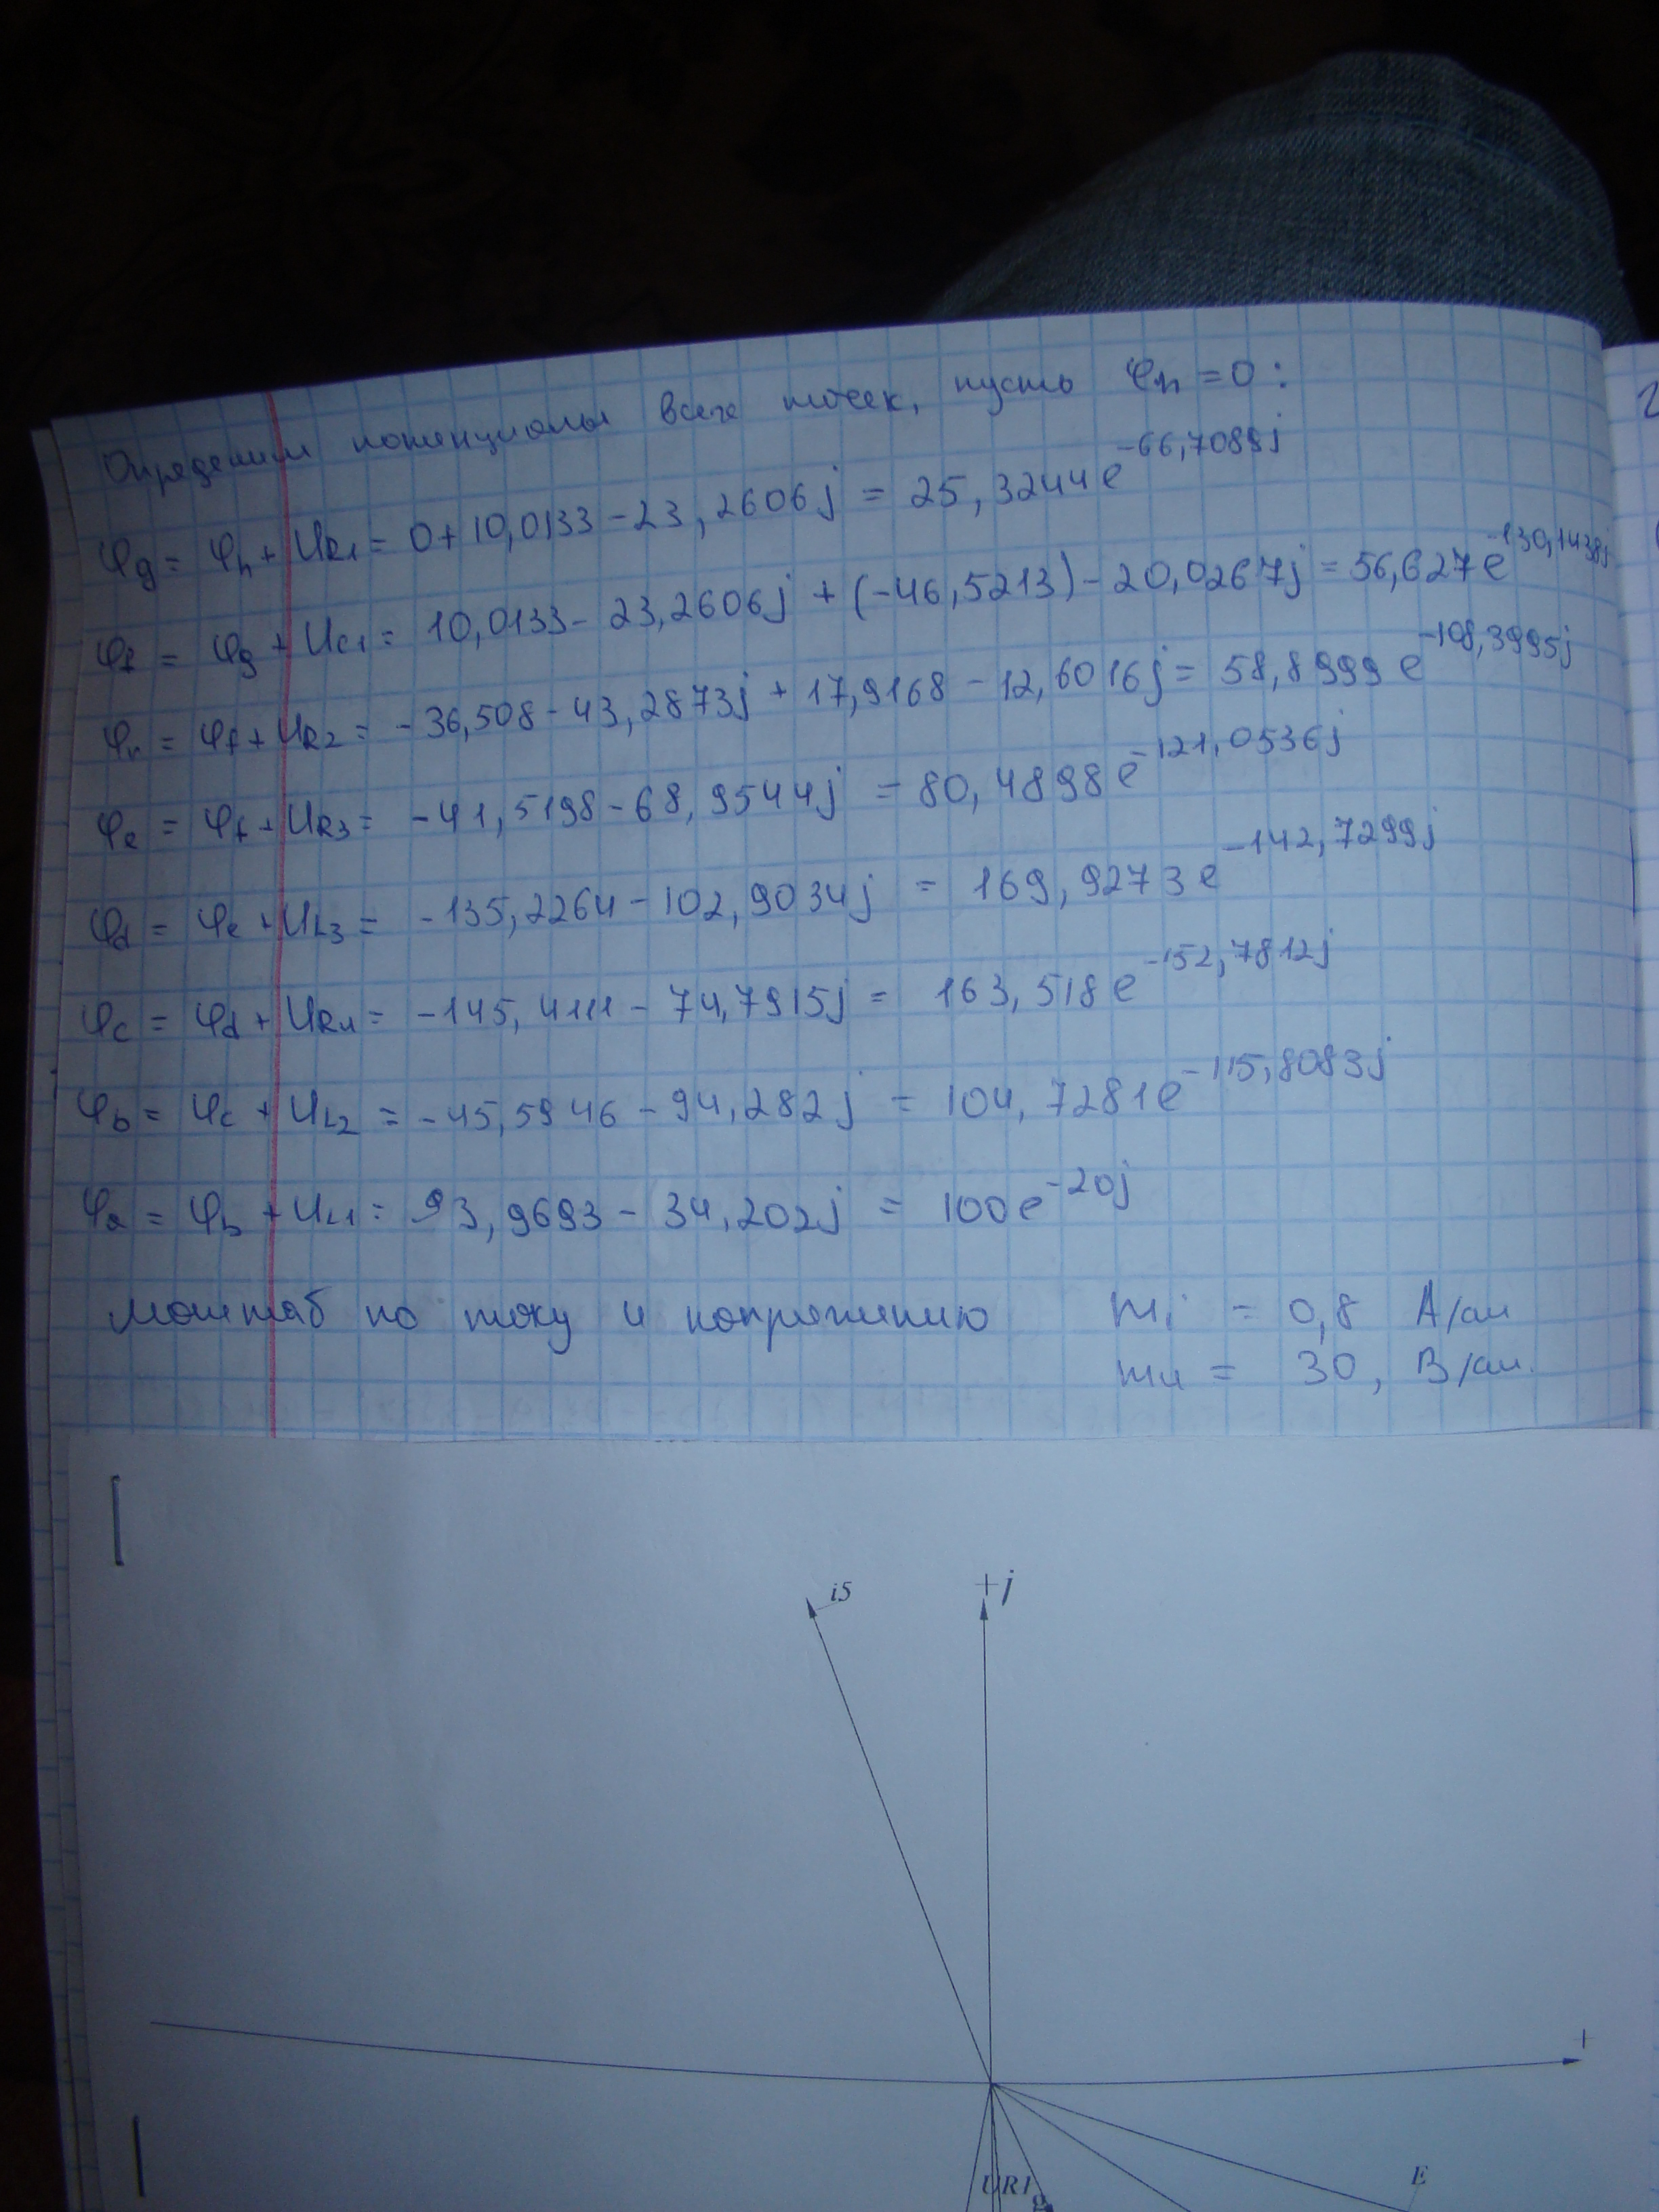 Определим потенциалы всех точек, пусть φh = 0 :
φg = φh + UR1 = 0 + 10,0133 - 23,2606j = 25,3244e^-66,7089j
φf = φg + UC1 = 10,0133 - 23,2606j + (-46,5213) - 20,0267j = 56,627e^-130,1438j
φn = φf + UR2 = -36,508 - 43,2873j + 17,9168 - 12,6016j = 58,8999e^-108,3995j
φe = φf + UR3 = -41,5198 - 68,9544j = 80,4898e^-121,0536j
φd = φe + UL3 = -135,2264 - 102,9034j = 169,9273e^-142,7299j
φc = φd + UR4 = -145,4111 - 74,7915j = 163,518e^-152,7812j
φb = φc + UL2 = -45,5946 - 94,282j = 104,7281e^-115,8083j
φa = φb + UL1 = 93,9693 - 34,202j = 100e^-20j
Масштаб по току и напряжению mi = 0,8 А/см
mu = 30, В/см.
i5
+j
+
E
UR1
g